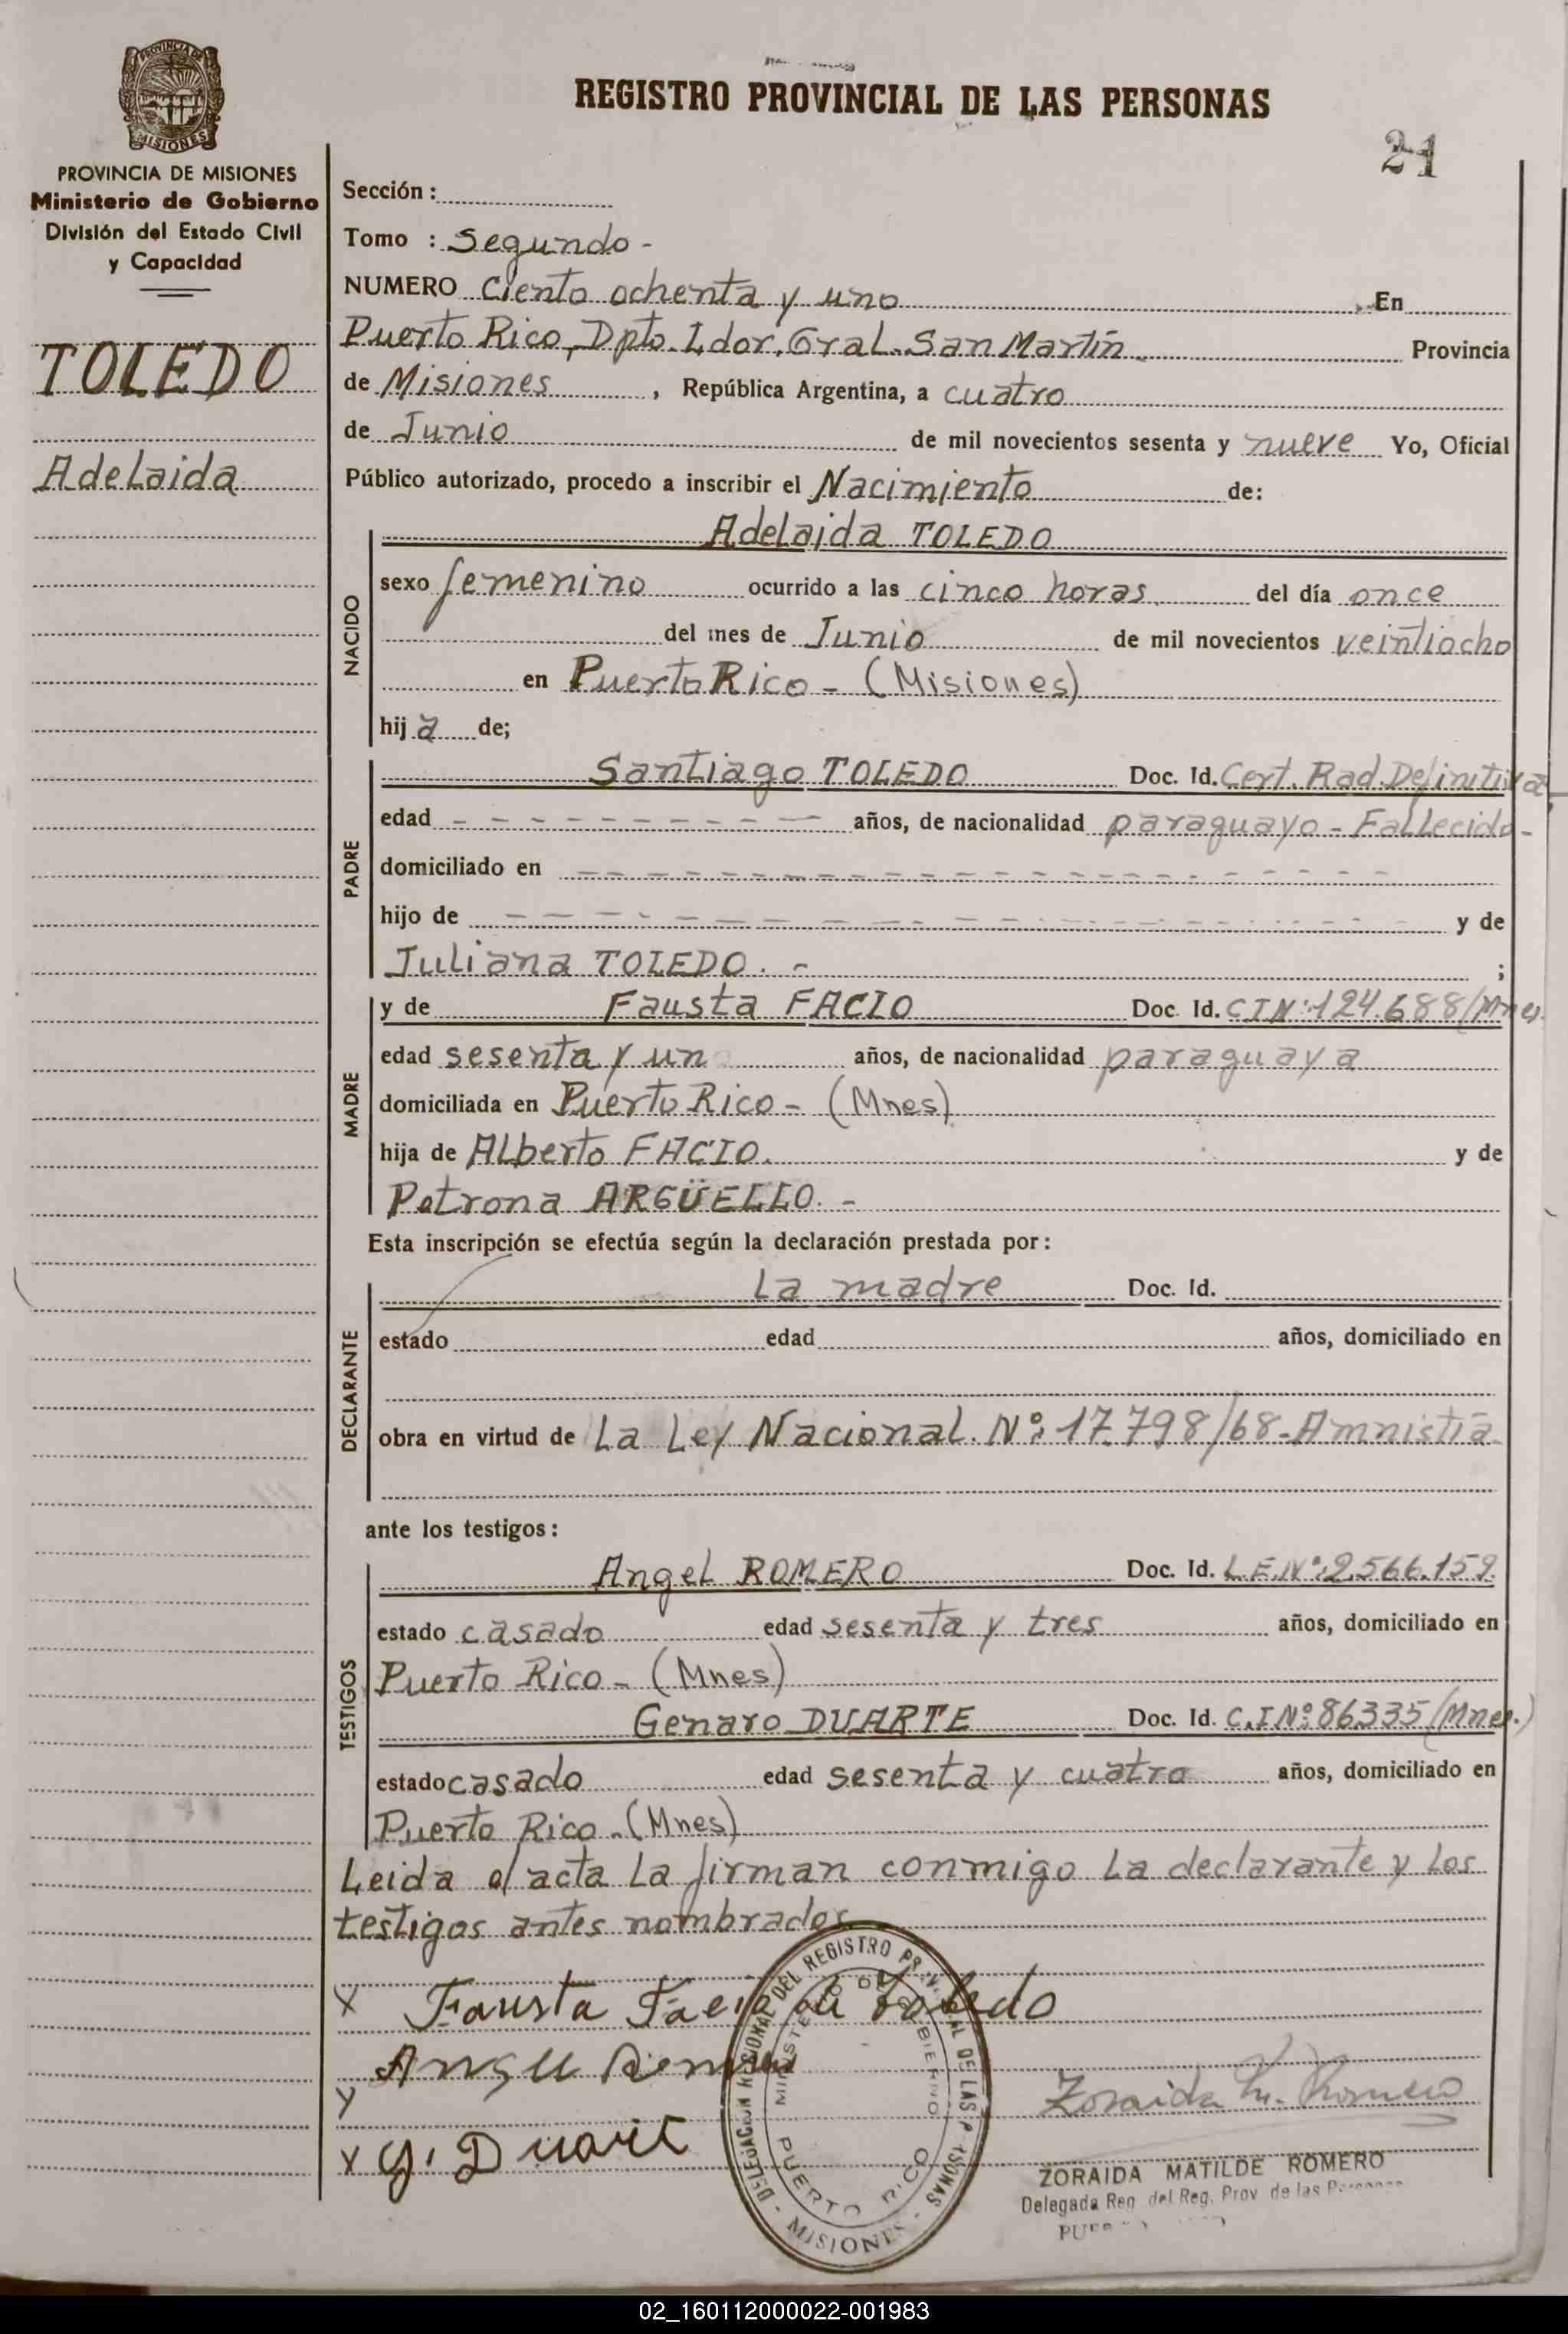 PROVINCIA DE MISIONES
REGISTRO PROVINCIAL DE LAS PERSONAS
21
PROVINCIA DE MISIONES
Ministerio de Gobierno
División del Estado Civil
y Capacidad
TOLEDO
Adelaida
Sección :
Tomo : Segundo -
NUMERO Ciento ochenta y uno En
Puerto Rico, Dpto. Ldor. Gral. San Martín Provincia
de Misiones , República Argentina, a cuatro
de Junio de mil novecientos sesenta y nueve Yo, Oficial
Público autorizado, procedo a inscribir el Nacimiento de:
NACIDO
Adelaida TOLEDO
sexo femenino ocurrido a las cinco horas del día once
del mes de Junio de mil novecientos veintiocho
en Puerto Rico - (Misiones)
hij a de;
PADRE
Santiago TOLEDO Doc. Id. Cert. Rad. Definitiva
edad - - - - - - - - - - años, de nacionalidad paraguayo - Fallecido -
domiciliado en - - - - - - - - - -
hijo de - - - - - - - - - - y de
Juliana TOLEDO. - ;
MADRE
y de Fausta FACIO Doc. Id. C I Nº: 124.688/Mnes.
edad sesenta y un años, de nacionalidad paraguaya
domiciliada en Puerto Rico - (Mnes)
hija de Alberto FACIO. y de
Petrona ARGÜELLO. -
Esta inscripción se efectúa según la declaración prestada por :
DECLARANTE
La madre Doc. Id.
estado edad años, domiciliado en
obra en virtud de La Ley Nacional. Nº: 17.798/68 - Amnistía
ante los testigos :
TESTIGOS
Angel ROMERO Doc. Id. L.E.Nº: 2.566.159.
estado casado edad sesenta y tres años, domiciliado en
Puerto Rico - (Mnes)
Genaro DUARTE Doc. Id. C.I Nº: 86335 (Mnes.)
estado casado edad sesenta y cuatro años, domiciliado en
Puerto Rico - (Mnes)
Leida el acta La firman conmigo La declarante y Los
testigos antes nombrados
X Fausta Facio de Toledo
Y Angel Romero
X G. Duarte
DELEGACION REGIONAL DEL REGISTRO PROVINCIAL DE LAS PERSONAS - MISIONES -
MINISTERIO DE GOBIERNO
PUERTO RICO
Zoraida M. Romero
ZORAIDA MATILDE ROMERO
Delegada Reg. del Reg. Prov. de las Personas
02_160112000022-001983